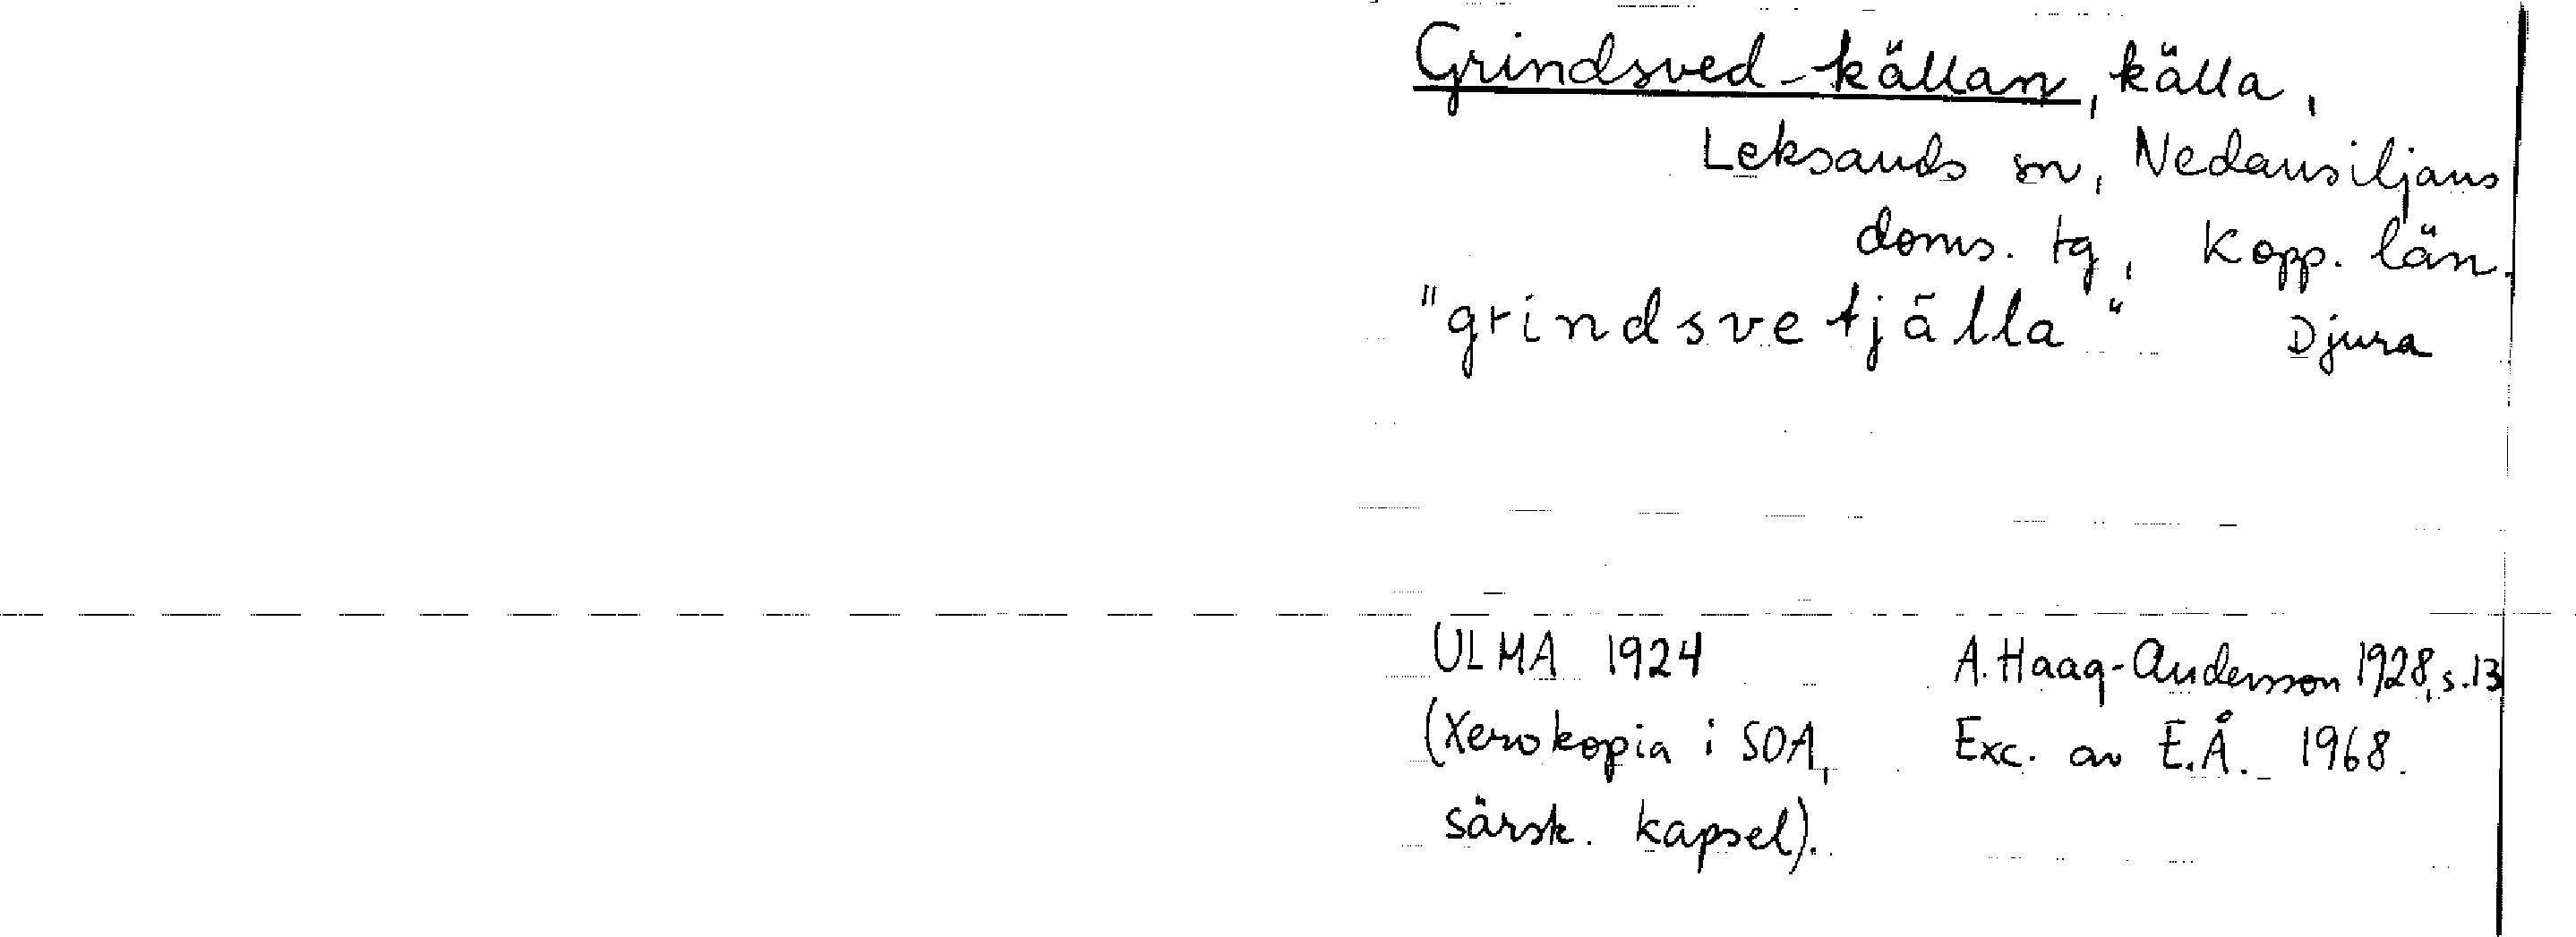 Grindsved-källan, källa,
Leksands sn, Nedansiljans
doms. tg, Kopp. län.
"grindsvetjälla" Djura
ULMA 1924 A. Haag-Andersson 1928, s. 13
(Xerokopia i SOA, Exc. av E.Å. 1968.
särsk. kapsel).